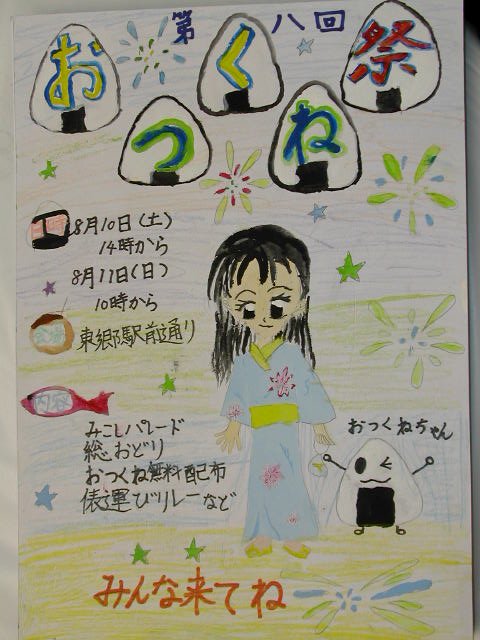 第八回
おつくね祭
日時
8月10日(土)
14時から
8月11日(日)
10時から
会場
東郷駅前通り
内容
みこしパレード
総おどり
おつくね無料配布
俵運びリレーなど
おつくねちゃん
みんな来てね